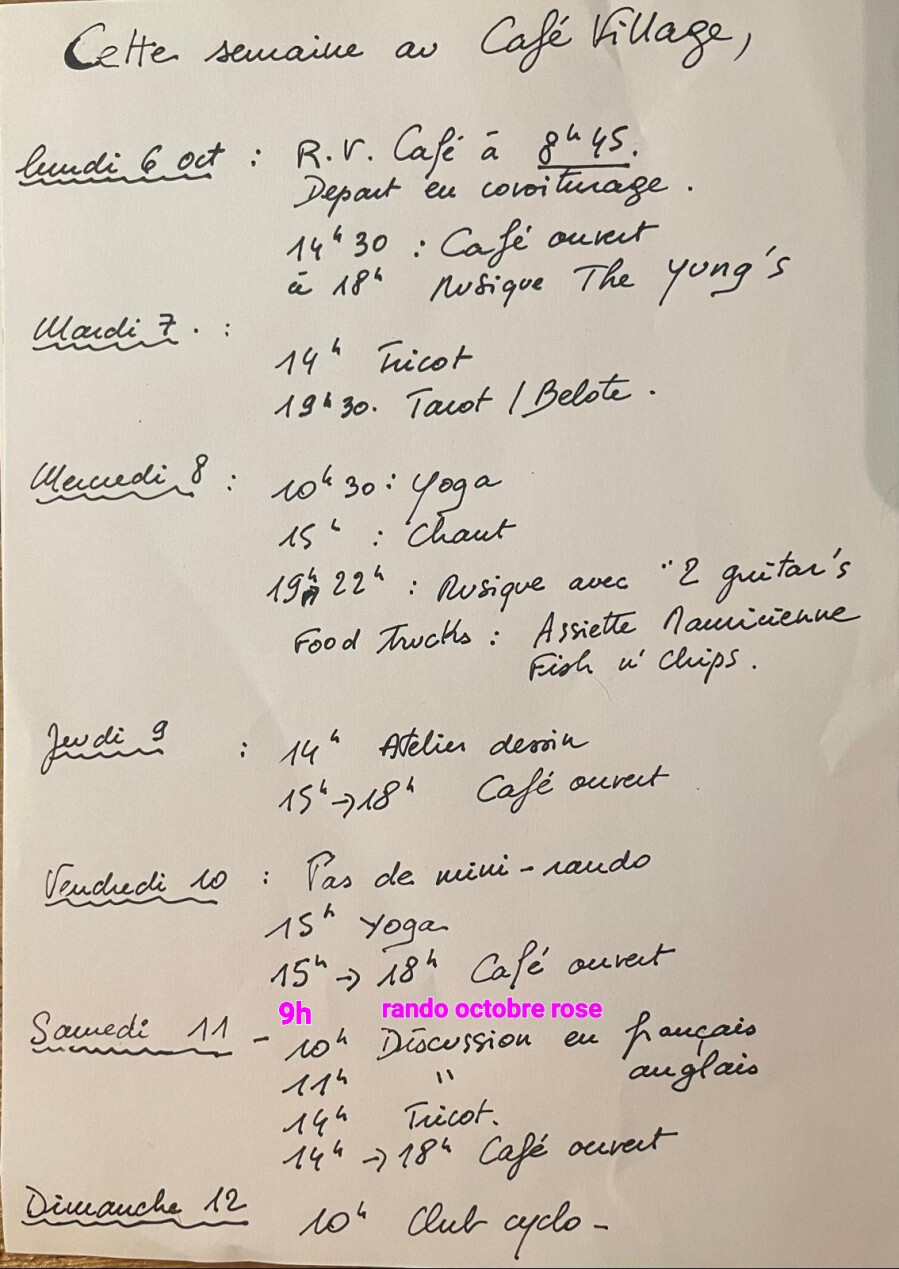 Cette semaine au Café Village,
lundi 6 oct : R.V. Café à 8h45.
Depart en covoiturage.
14h30 : Café ouvert
à 18h Musique The Yung's
Mardi 7. :
14h Tricot
19h30. Tarot / Belote.
Mercredi 8 : 10h30 : Yoga
15h : Chant
19h 22h : Musique avec "2 guitar's
Food Trucks : Assiette Mauricienne
Fish n' Chips.
Jeudi 9 : 14h Atelier dessin
15h → 18h Café ouvert
Vendredi 10 : Pas de mini-rando
15h Yoga
15h → 18h Café ouvert
9h rando octobre rose
Samedi 11 - 10h Discussion en français
11h " anglais
14h Tricot.
14h → 18h Café ouvert
Dimanche 12 10h Club cyclo -